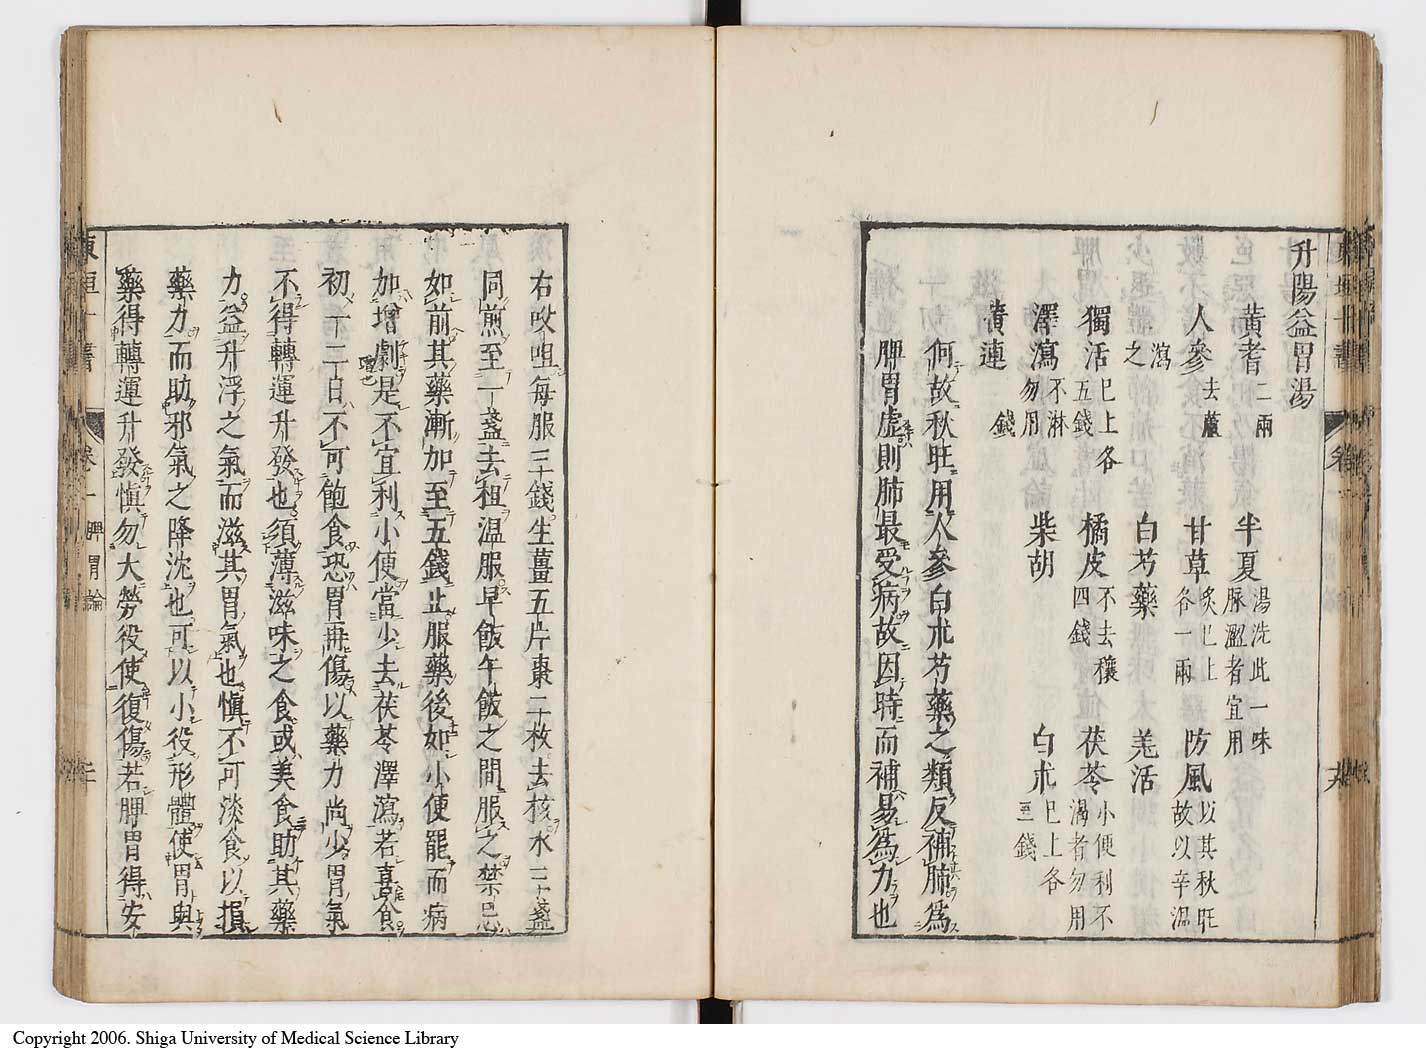 升陽益胃湯
黃耆二兩 半夏湯洗此一味脉濇者宜用
人參去蘆 甘草炙巳上各一兩 防風以其秋旺故以辛温
瀉之 白芍藥 羌活
獨活巳上各五錢 橘皮不去穰四錢 茯苓小便利不渴者勿用
澤瀉不淋勿用 柴胡 白朮巳上各三錢
黃連一錢
何故秋旺用人參白朮芍藥之類反補肺爲
脾胃虛則肺最受病故因時而補易爲力也
右㕮咀每服三錢生薑五片棗二枚去核水三盞
同煎至一盞去柤温服早飯午飯之間服之禁忌
如前其藥漸加至五錢止服藥後如小便罷而病
加增劇是不宜利小便當少去茯苓澤瀉若喜食
初一二日不可飽食恐胃再傷以藥力尚少胃氣
不得轉運升發也須薄滋味之食或美食助其藥
力益升浮之氣而滋其胃氣也愼不可淡食以損
藥力而助邪氣之降沈也可以小役形體使胃與
藥得轉運升發愼勿大勞役使復傷若脾胃得安
東垣十書 卷一 脾胃論
Copyright 2006. Shiga University of Medical Science Library